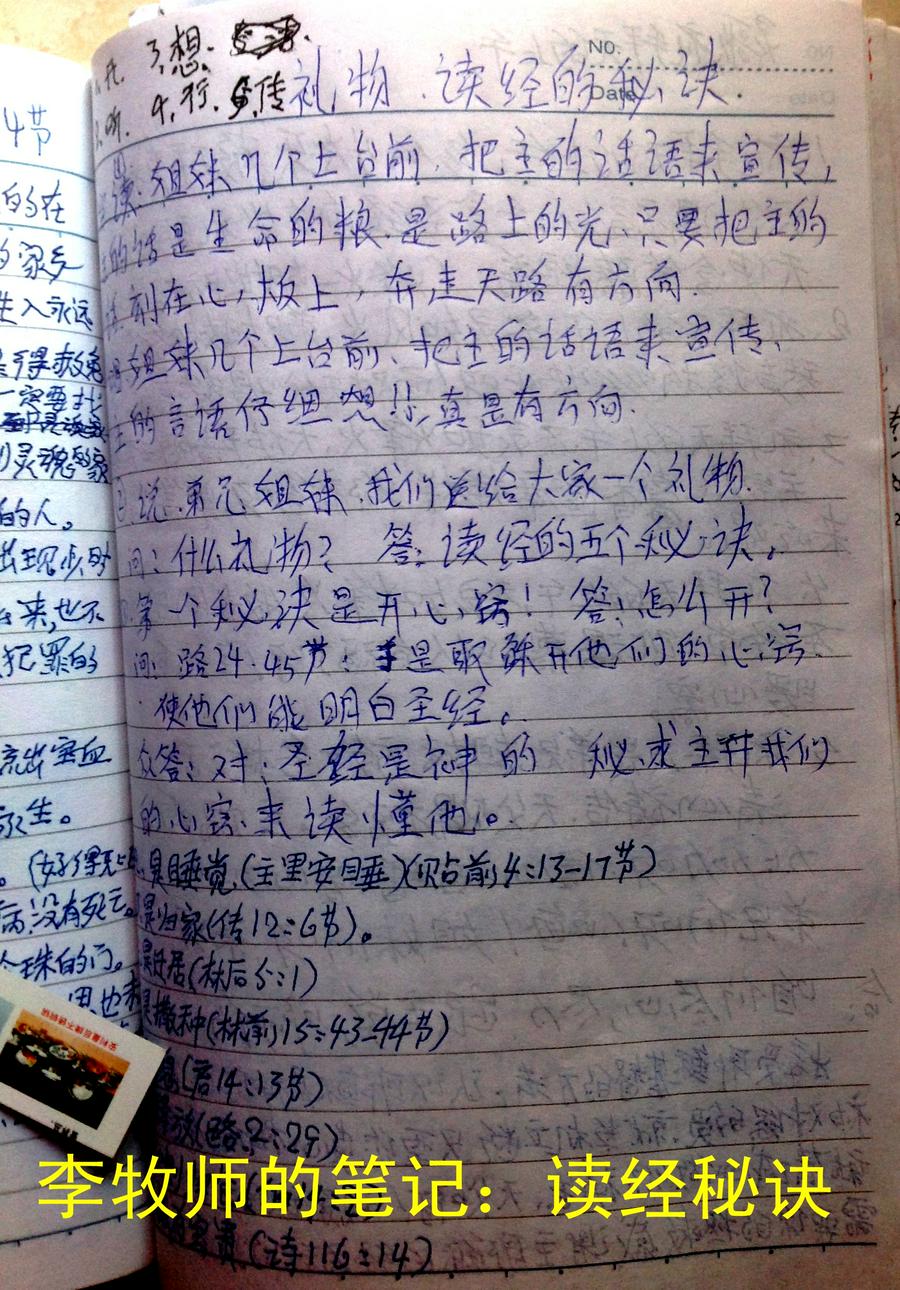 4节
的在
的家乡
生入永远
得救
一定要
灵魂的家
的人。
出现
来,也不
犯罪的
流出宝血
永生。
没有死亡。
珠的门。
开. 3.想.
听. 4.行. 传
礼物.读经的秘诀.
NO.
Date
读:姐妹几个上台前.把主的话语来宣传,
的话是生命的粮.是路上的光、只要把主的
刻在心板上,奔走天路有方向.
姐妹几个上台前、把主的话语来宣传、
主的言语仔细想!!真是有方向.
说.弟兄姐妹.我们送给大家一个礼物.
问:什么礼物? 答:读经的五个秘诀。
第一个秘诀是开心窍! 答:怎么开?
问:路24:45节:是耶稣开他们的心窍.
使他们能明白圣经。
众答:对:圣经是神的 秘.求主开我们
的心窍.来读懂他。
是睡觉(主里安睡)(帖前4:13-17节)
是归家(传12:6节)。
是迁居(林后5:1)
是撒种(林前15:43-44节)
(启14:13节)
(路2:29)
李牧师的笔记:读经秘诀
(诗116:14)